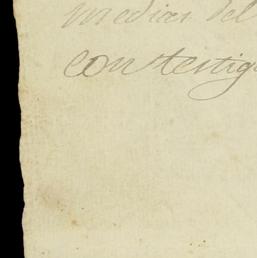 medias del
con testig